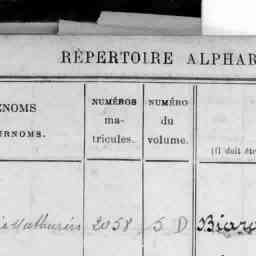 RÉPERTOIRE ALPHAB
ÉNOMS
URNOMS.
NUMÉROS
ma-
tricules.
NUMÉRO
du
volume.
(Il doit êtr
Mathurin 2058 5 D